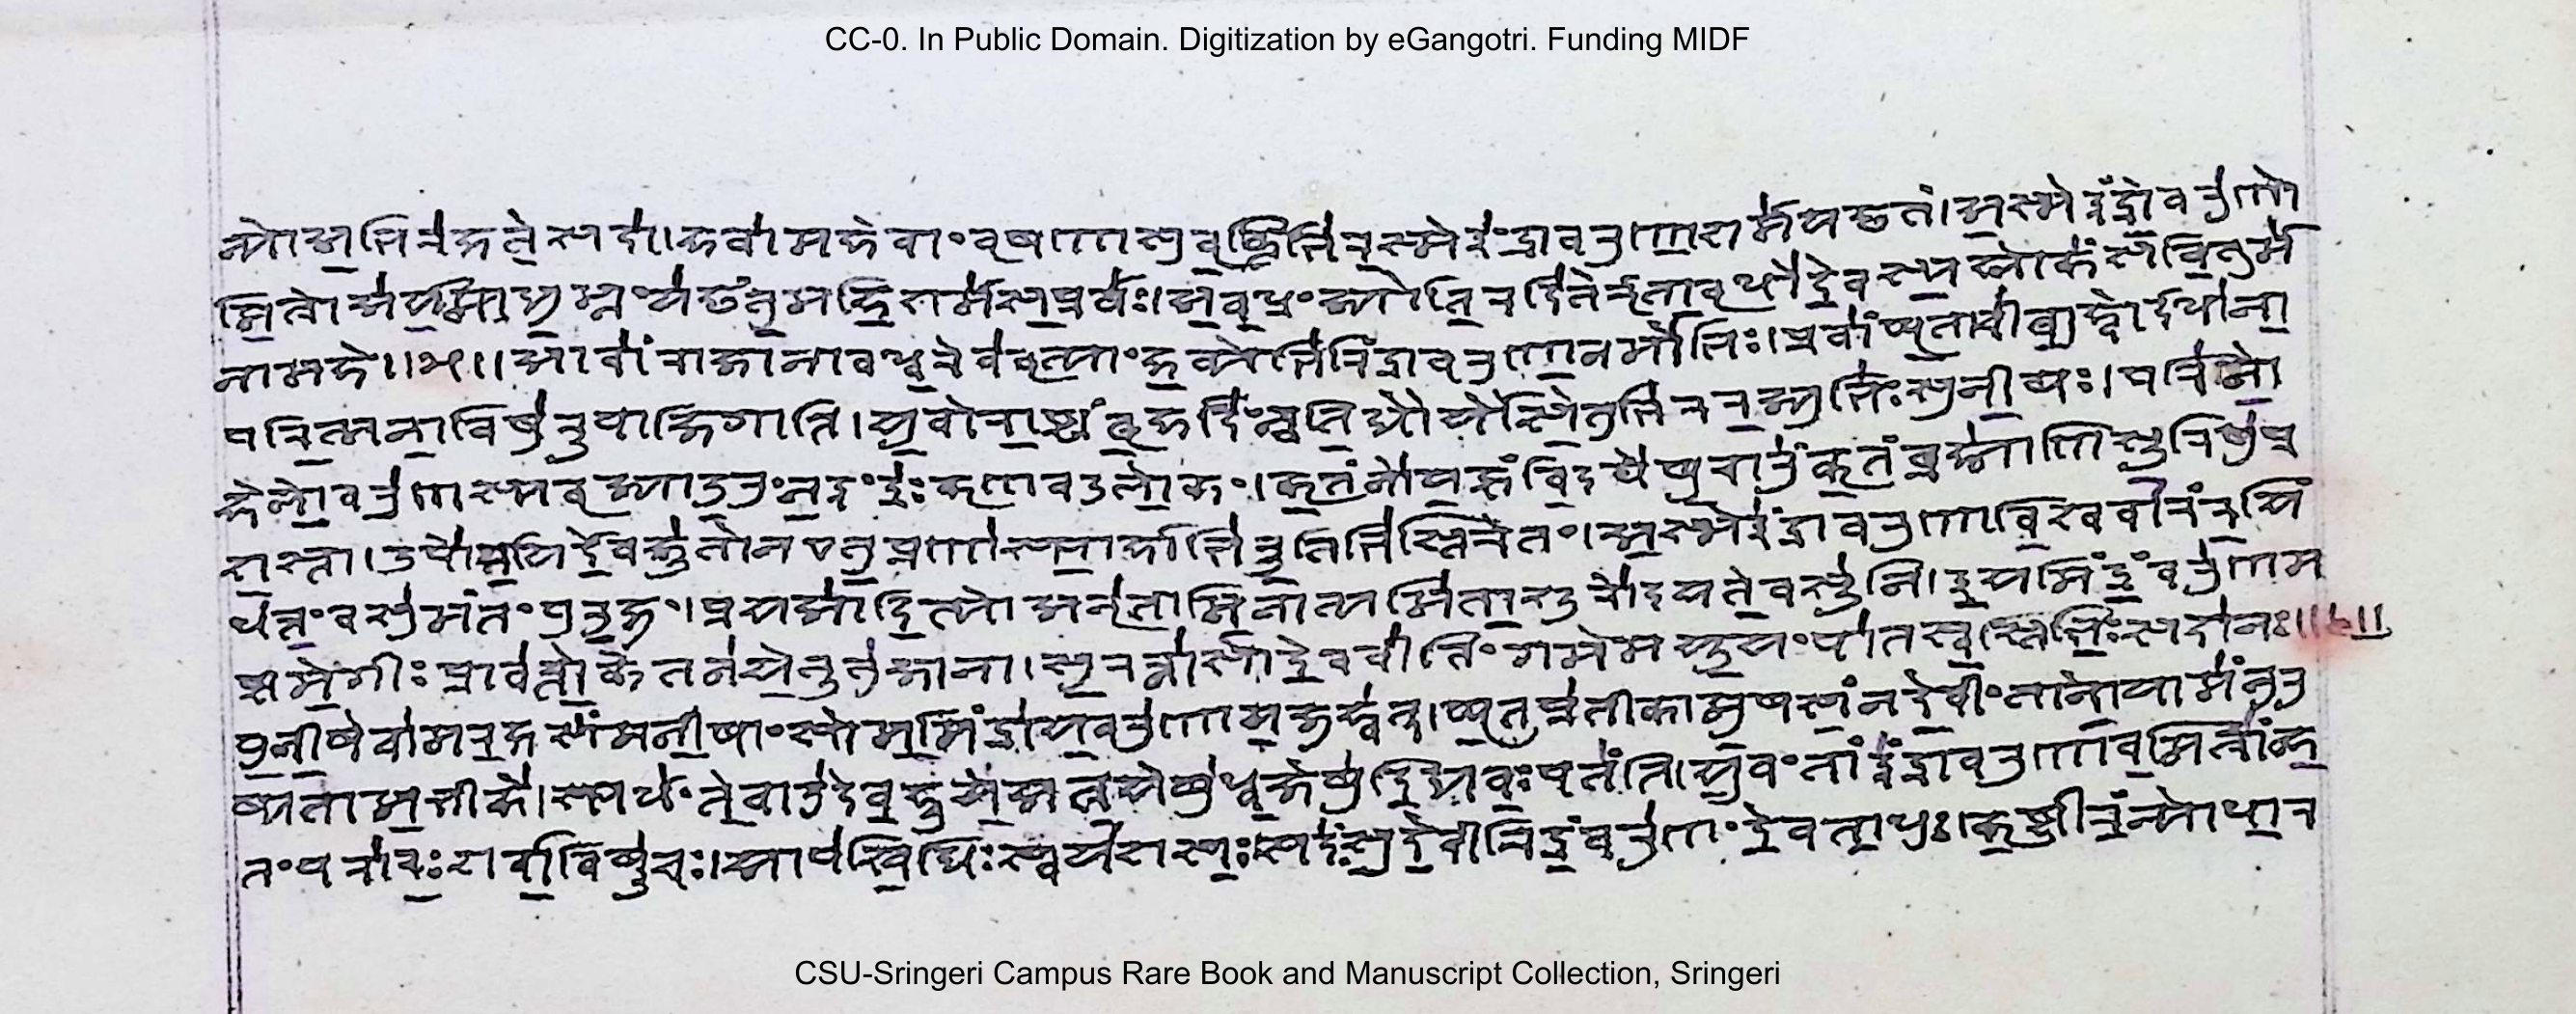 CC-0. In Public Domain. Digitization by eGangotri. Funding MIDF
न्यो अभिरक्षते सदा। हवामहे वां वृषणा सुवृक्तिभिरस्मे इंद्रावरुणा शर्म यच्छतं। अस्मे इंद्रो वरुणो
मित्रो अर्यमा द्युम्नं यच्छंतु महि शर्म सप्रथः। अवध्रं ज्योतिरदितेर्ऋतावृधो देवस्य श्लोकं सवितुर्म
नामहे॥५॥ आ वां राजानावध्वरे ववृत्यां हव्येभिरिंद्रावरुणा नमोभिः। प्र वां घृताची बाह्वोर्दधाना
परि त्मना विषुरूपा जिगाति। युवो राष्ट्रं बृहदिन्वति द्यौर्यौ सेतृभिररज्जुभिः सिनीथः। परि नो
हेळो वरुणस्य वृज्या उरुं न इंद्रः कृणवदु लोकं। कृतं नो यज्ञं विदथेषु चारुं कृतं ब्रह्माणि सूरिषु प्र
शस्ता। उपो रयिर्देवजूतो न एतु प्र णः स्पार्हाभिरूतिभिस्तिरेतं। अस्मे इंद्रावरुणा विश्ववारं रयिं
धत्तं वसुमंतं पुरुक्षुं। प्र य आदित्यो अनृता मिनात्यमिता शूरो दयते वसूनि। इयमिंद्रं वरुणम
ष्ट मे गीः प्रावत्तोके तनये तूतुजाना। सुरत्नासो देववीतिं गमेम यूयं पात स्वस्तिभिः सदा नः॥६॥
पुनीषे वामरक्षसं मनीषां सोममिंद्राय वरुणाय जुह्वत्। घृतप्रतीकामुषसं न देवीं ता नो यामंनुरु
ष्यतामभीके। स्पर्धंते वा उ देवहूये अत्र येषु ध्वजेषु दिद्यवः पतंति। युवं ताँ इंद्रावरुणावमित्रान्ह
तं पराचः शर्वा विषूचः। आपश्चिद्धि स्वयशसः सदस्सु देवीरिंद्रं वरुणं देवता धुः। कृष्टीरन्यो धार
CSU-Sringeri Campus Rare Book and Manuscript Collection, Sringeri